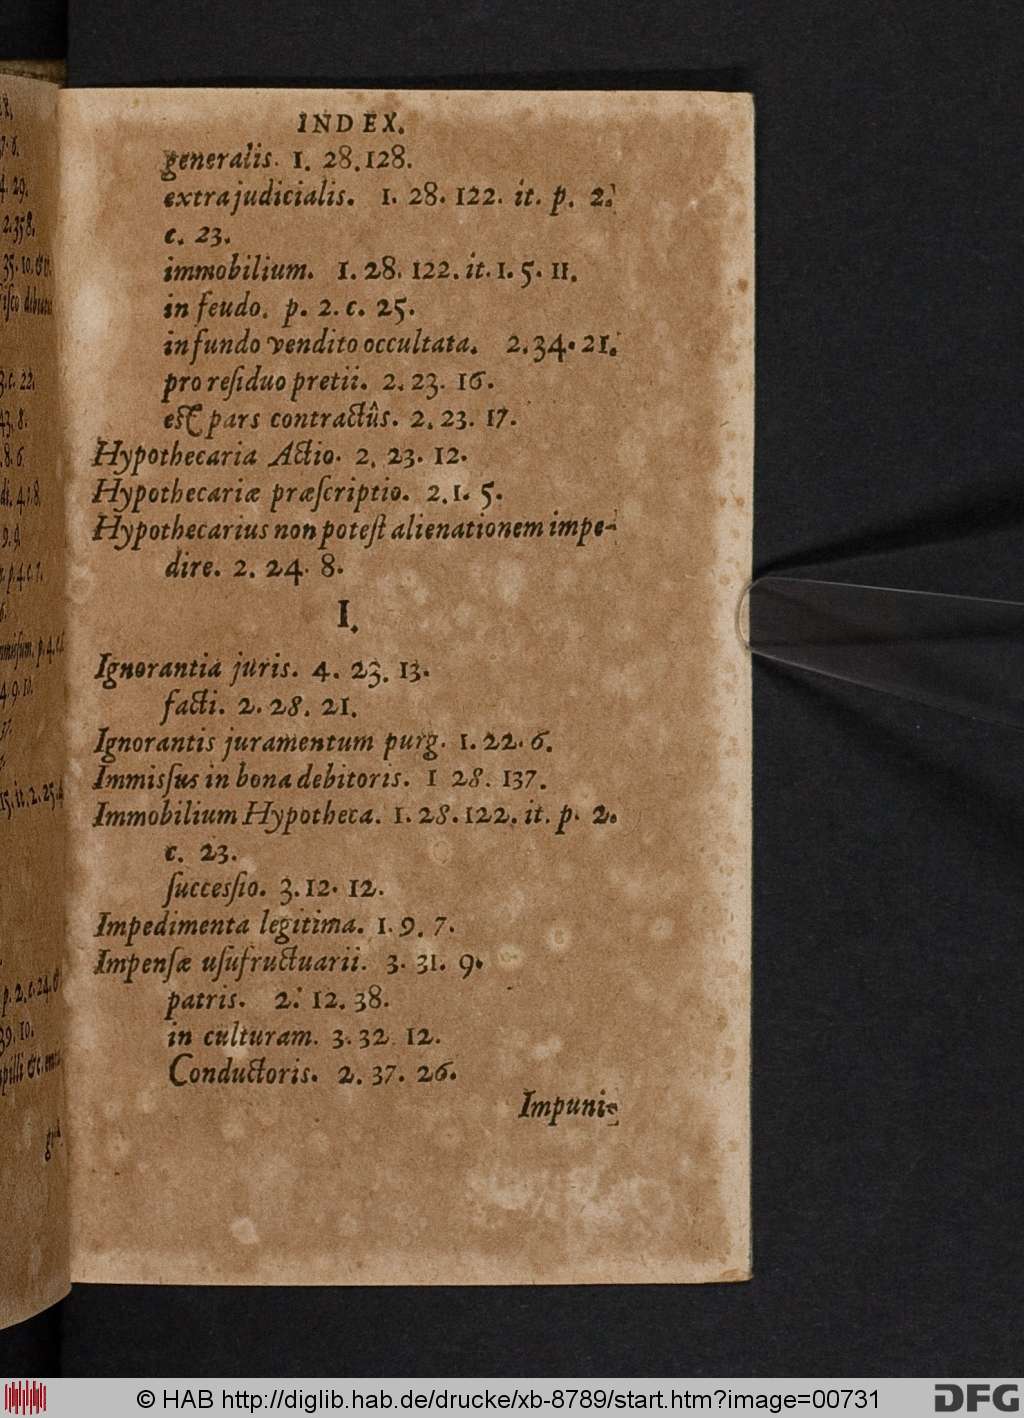 INDEX.
generalis. 1. 28. 128.
extrajudicialis. 1. 28. 122. it. p. 2.
c. 23.
immobilium. 1. 28. 122. it. 1. 5. 11.
in feudo. p. 2. c. 25.
in fundo vendito occultata. 2. 34. 21.
pro reſiduo pretii. 2. 23. 16.
eſt pars contractûs. 2. 23. 17.
Hypothecaria Actio. 2. 23. 12.
Hypothecariæ præſcriptio. 2. 1. 5.
Hypothecarius non poteſt alienationem impe-
dire. 2. 24. 8.
I.
Ignorantia juris. 4. 23. 13.
facti. 2. 28. 21.
Ignorantis juramentum purg. 1. 22. 6.
Immisſus in bona debitoris. 1 28. 137.
Immobilium Hypotheca. 1. 28. 122. it. p. 2.
c. 23.
ſuccesſio. 3. 12. 12.
Impedimenta legitima. 1. 9. 7.
Impenſæ uſufructuarii. 3. 31. 9.
patris. 2. 12. 38.
in culturam. 3. 32 12.
Conductoris. 2. 37. 26.
Impuni-
© HAB http://diglib.hab.de/drucke/xb-8789/start.htm?image=00731
DFG